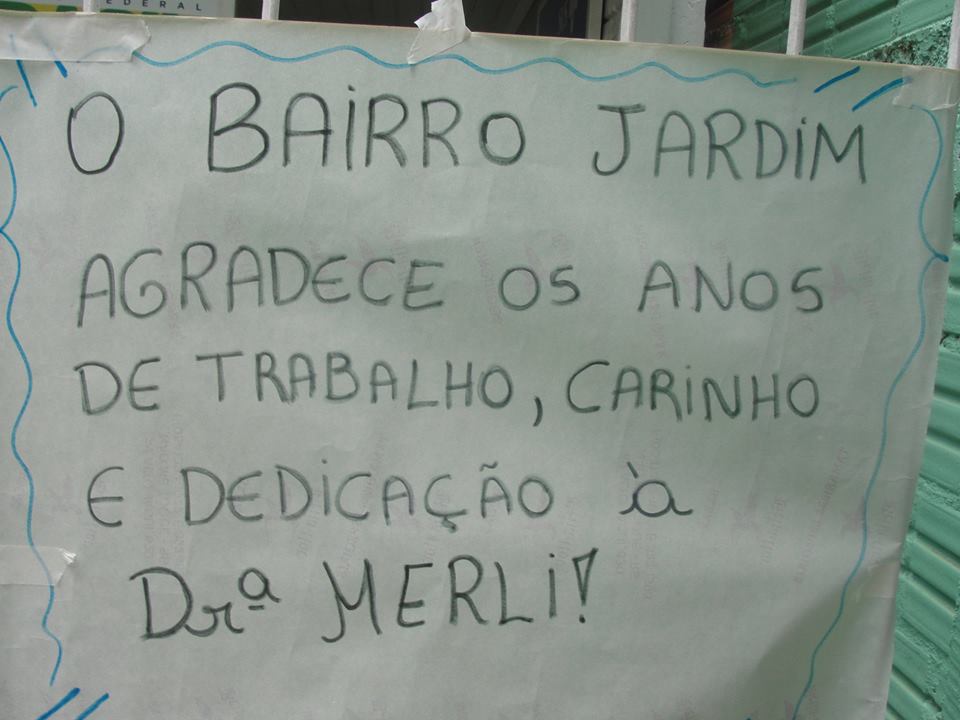 EDERAL
O BAIRRO JARDIM
AGRADECE OS ANOS
DE TRABALHO, CARINHO
E DEDICAÇÃO à
Drª MERLI!